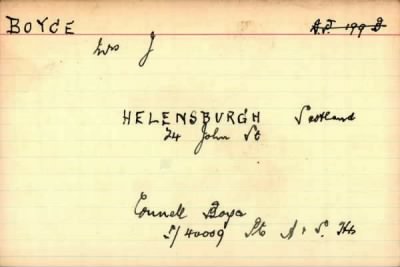 BOYCE A.F. 199 B
Mrs J
HELENSBURGH Scotland
24 John St
Connell Boyce
S/40009 Pte A & S. Hs